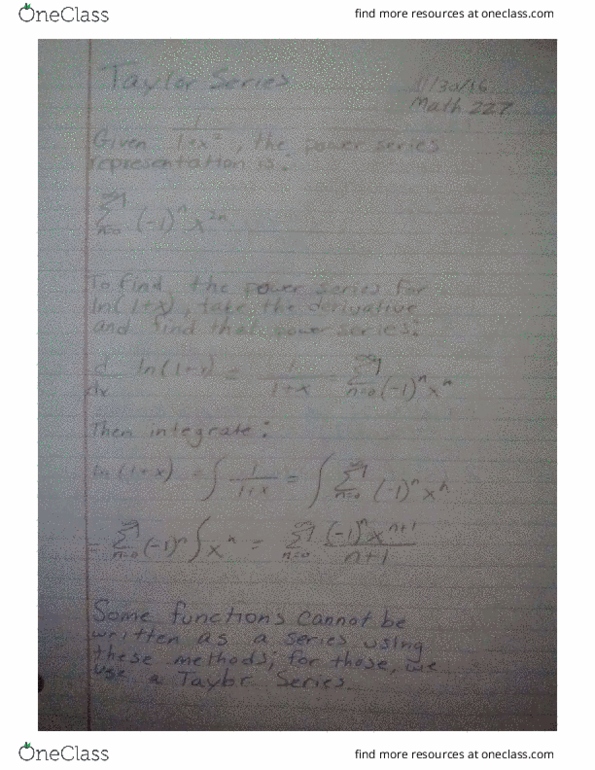 OneClass
find more resources at oneclass.com
Taylor Series
11/30/16
Math 227
Given 1/(1+x²), the power series
representation is:
∞∑n=0 (-1)ⁿ x²ⁿ
To find the power series for
ln(1+x), take the derivative
and find that power series:
d/dx ln(1+x) = 1/(1+x) = ∞∑n=0 (-1)ⁿ xⁿ
Then integrate:
ln(1+x) = ∫ 1/(1+x) = ∫ ∞∑n=0 (-1)ⁿ xⁿ
= ∞∑n=0 (-1)ⁿ ∫ xⁿ = ∞∑n=0 (-1)ⁿ xⁿ⁺¹/(n+1)
Some functions cannot be
written as a series using
these methods; for those, we
use a Taylor Series
OneClass
find more resources at oneclass.com